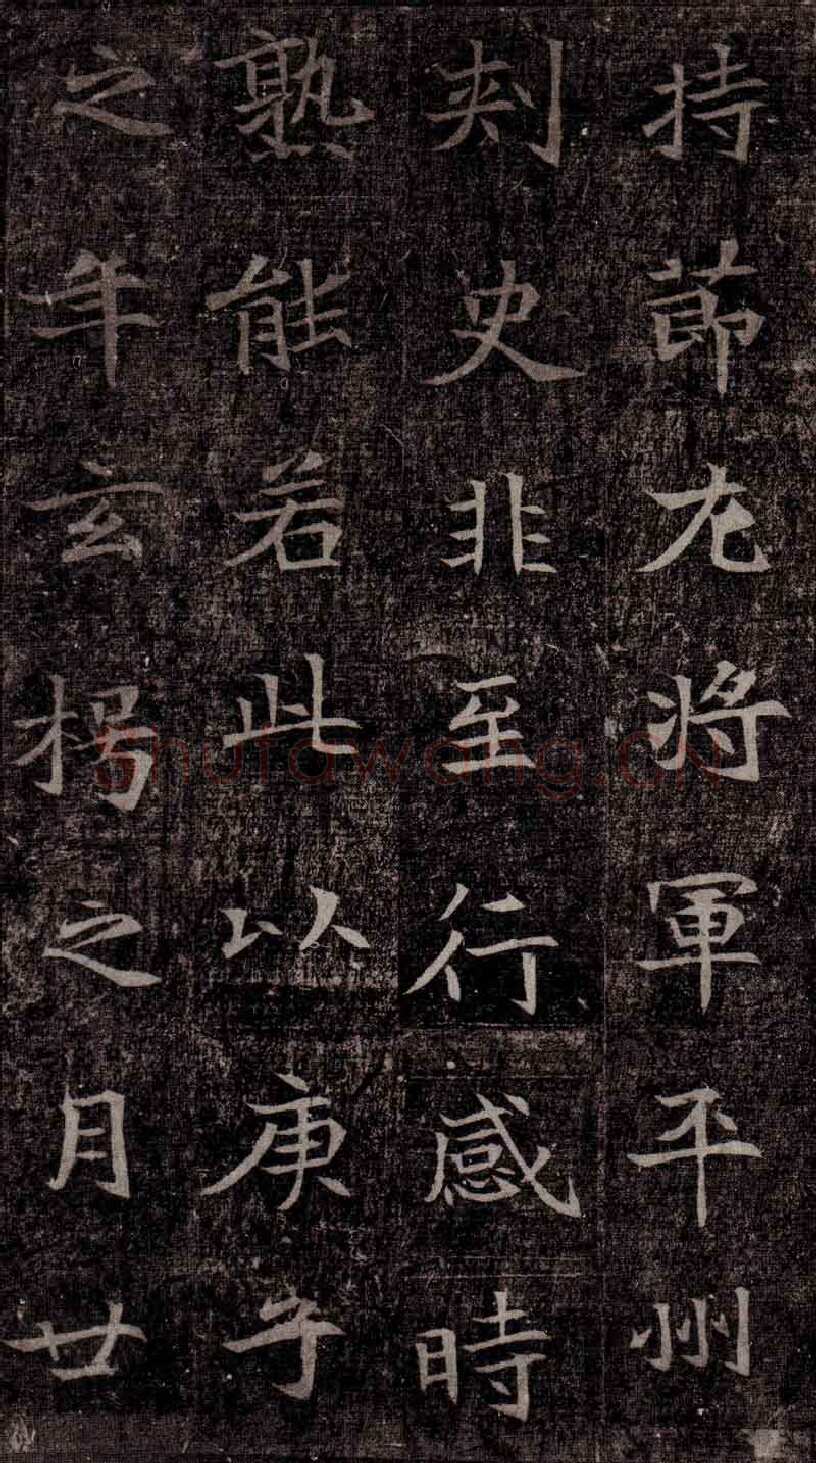 持節左將軍平州
刾史非至行感時
熟能若此以庚子
之年玄枵之月廿
shufawang.CN